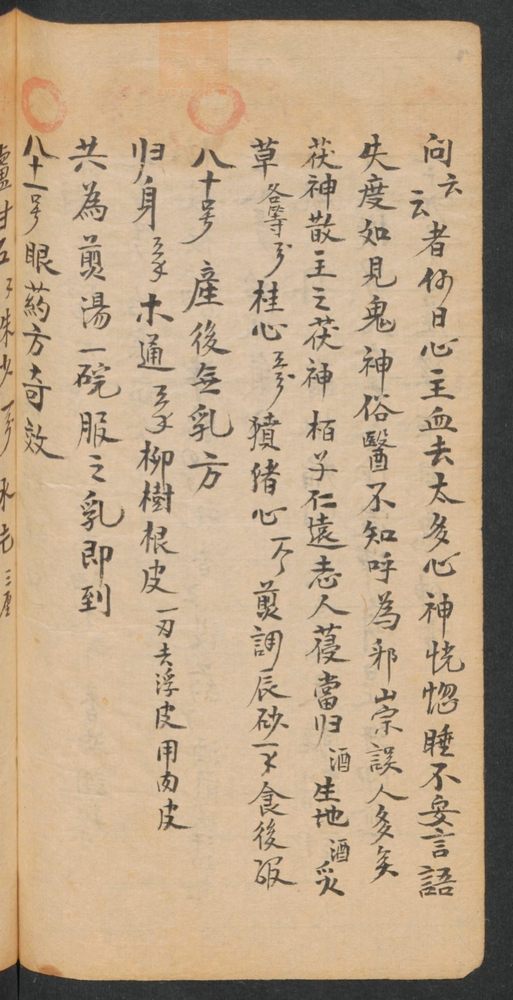 问云云者何曰心主血去太多心神恍惚睡不妄言語
失度如見鬼神俗醫不知呼為邪崇誤人多矣
茯神散主之茯神柏子仁遠志人蓡當归酒生地酒炙
草各等分桂心五分獖猪心一个煎調辰砂一不食後服
八十号 產後無乳方
归身 木通 柳樹根皮一刃去浮皮用肉皮
共為煎湯一碗服之乳即到
八十一号眼药方奇效
甘石 硃少